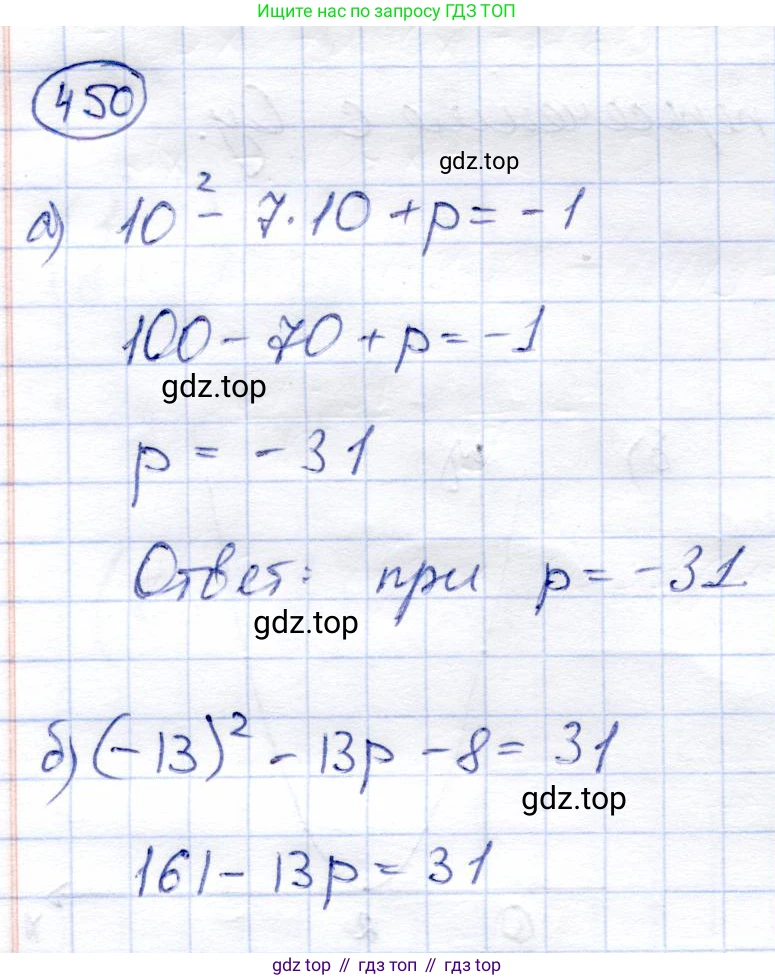 Ищите нас по запросу ГДЗ ТОП
450
gdz.top
а) 10² - 7·10 + p = -1
100 - 70 + p = -1
gdz.top
p = -31
Ответ: при p = -31
gdz.top
б) (-13)² - 13p - 8 = 31
gdz.top
161 - 13p = 31
gdz top // гдз топ // gdz.top